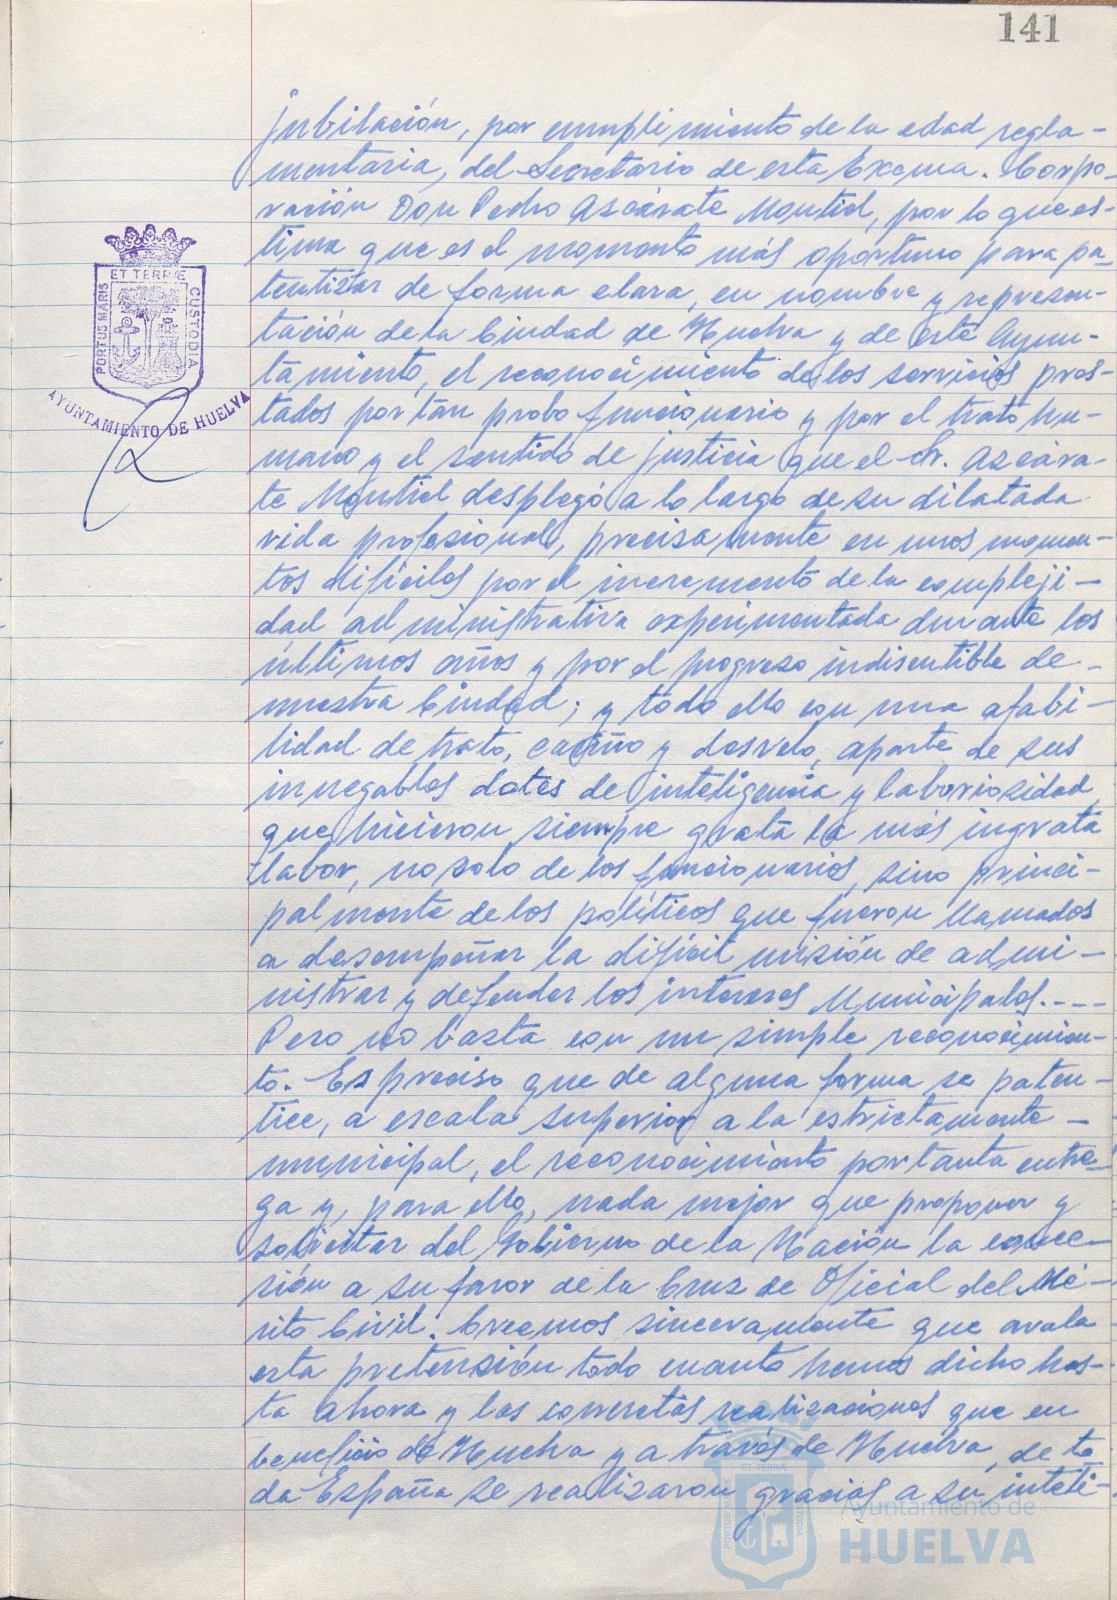 141
jubilación, por cumplimiento de la edad regla-
mentaria, del Secretario de esta Excma. Corpo-
ración Don Pedro Azcárate Montiel, por lo que es-
tima que es el momento más oportuno para pa-
tentizar de forma clara, en nombre y represen-
tación de la Ciudad de Huelva y de este Ayun-
tamiento, el reconocimiento de los servicios pres-
tados por tan probo funcionario y por el trato hu-
mano y el sentido de justicia que el Sr. Azcára-
te Montiel desplegó a lo largo de su dilatada
vida profesional, precisamente en unos momen-
tos difíciles por el incremento de la compleji-
dad administrativa experimentada durante los
últimos años y por el progreso indiscutible de
nuestra Ciudad; y todo ello con una afabi-
lidad de trato, cariño y desvelo, aparte de sus
innegables dotes de inteligencia y laboriosidad
que hicieron siempre grata la más ingrata
labor, no solo de los funcionarios, sino princi-
palmente de los políticos que fueron llamados
a desempeñar la difícil misión de admi-
nistrar y defender los intereses Municipales.---
Pero no basta con un simple reconocimien-
to. Es preciso que de alguna forma se paten-
tice, a escala superior a la estrictamente
municipal, el reconocimiento por tanta entre-
ga y, para ello, nada mejor que proponer y
solicitar del Gobierno de la Nación la conce-
sión a su favor de la Cruz de Oficial del Mé-
rito Civil. Creemos sinceramente que avala
esta pretensión todo cuanto hemos dicho has-
ta ahora y las concretas realizaciones que en
beneficio de Huelva y a través de Huelva, de to
da España se realizaron gracias a su inteli-
PORTUS MARIS
ET TERRÆ
CUSTODIA
AYUNTAMIENTO DE HUELVA
PORTUS MARIS
ET TERRÆ
CUSTODIA
Ayuntamiento de
HUELVA